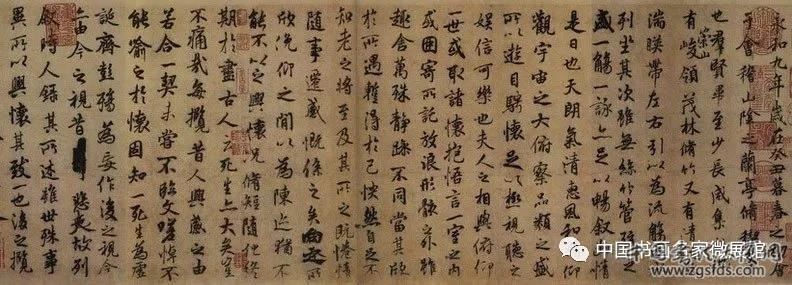 永和九年歲在癸丑暮春之初會
于會稽山陰之蘭亭脩稧
也羣賢畢至少長咸集
崇山
有峻領茂林脩竹又有清
湍暎帶左右引以為流觴
列坐其次雖無絲竹管弦之
盛一觴一詠亦足以暢敘情
是日也天朗氣清惠風和仰
觀宇宙之大俯察品類之盛
所以遊目騁懷足以極視聽之
娛信可樂也夫人之相與俯仰
一世或取諸懷抱悟言一室之內
或因寄所託放浪形骸之外雖
趣舍萬殊靜躁不同當其欣
於所遇暫得於己快然自足不
知老之將至及其所之既惓情
隨事遷感慨係之矣向之所
欣俛仰之間以為陳迹猶不
能不以之興懷況脩短隨化終
期於盡古人云死生亦大矣豈
不痛哉每攬昔人興感之由
若合一契未嘗不臨文嗟悼不
能喻之於懷固知一死生為虛
誕齊彭殤為妄作後之視今
亦由今之視昔悲夫故列
敘時人錄其所述雖世殊事
異所以興懷其致一也後之攬
中国书画名家微展馆
www.zgsfds.com